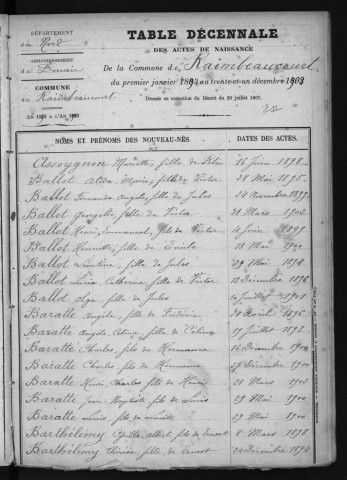 DÉPARTEMENT
du Nord
ARRONDISSEMENT
de Douai
COMMUNE
de Raimbeaucourt
TABLE DÉCENNALE
DES ACTES DE NAISSANCE
De la Commune de Raimbeaucourt
du premier janvier 1893 au trente-et-un décembre 1902
Dressée en exécution du Décret du 20 juillet 1807.
NOMS ET PRÉNOMS DES NOUVEAU-NÉS. DATES DES ACTES.
Assoygnon Mariette, fille de 16 Juin 1898.
Ballot Alda Marie, fille de Victor 28 Mai 1895.
Ballot Fernande Angèle, fille de Jules 24 Novembre 1899.
Ballot Georgette, fille de Victor 28 Mars 1902.
Ballot Henri, Emmanuel, fils de Victor 4 Juin 1897.
Ballot Henriette, fille de 18 Mai 1900
Ballot Léontine, fille de Jules 29 Mai 1894.
Ballot Catherine, fille de Victor 18 Décembre 1896
Ballot Olga, fille de Jules 10 Juillet 1901
Baratte Angèle, fille de Frédéric 24 Avril 1896
Baratte Angèle Célina, fille de 19 Juillet 1893.
Baratte Charles, fils de Hermance 16 Décembre 1900
Baratte Charles, fils de Hermance 27 Décembre 1900.
Baratte Henri, Charles, fils de Henri 01 Mars 1903
Baratte Jean Baptiste, fils de Louis 29 Mai 1900
Baratte Louis, fils de Louis 29 Mai 1900
Barthélémy Albert, fils de Ernest 8 Mars 1898
Barthélémy Thérèse, fille de Ernest 24 Décembre 1894